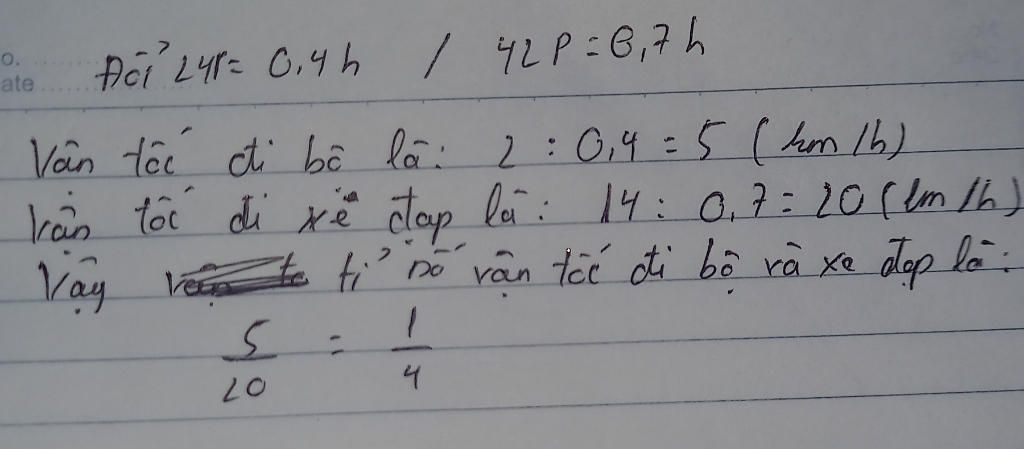 o.
ate
Đổi 24P = 0,4h / 42P = 0,7h
Vận tốc đi bộ là: 2 : 0,4 = 5 (km/h)
Vận tốc đi xe đạp là: 14 : 0,7 = 20 (km/h)
Vậy tỉ số vận tốc đi bộ và xe đạp là:
5/20 = 1/4